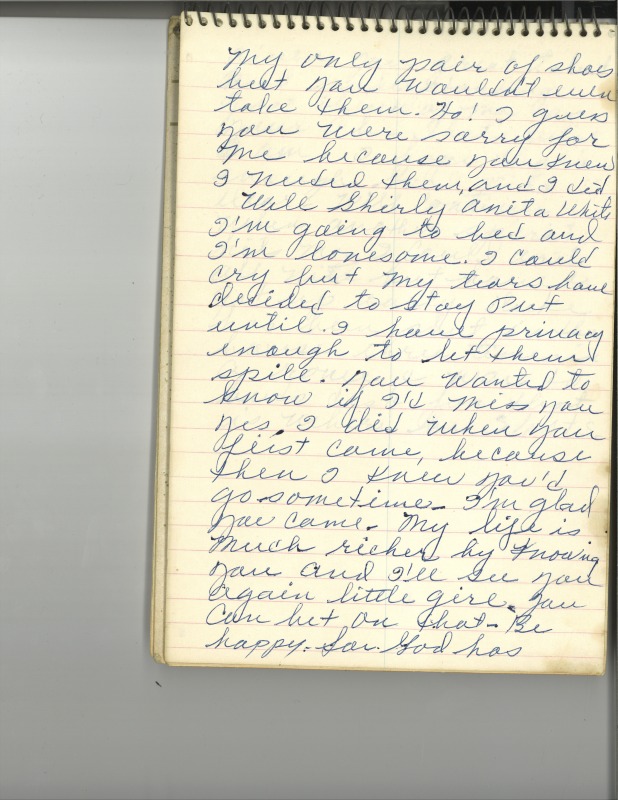 My only pair of shoes
but you wouldn't even
take them. Ho! I guess
you were sorry for
me because you knew
I needed them, and I did
Well Shirly Anita White
I'm going to bed and
I'm lonesome. I could
cry but my tears have
decided to stay put
until I have privacy
enough to let them
spill. You wanted to
know if I'd miss you
yes, I did when you
first came, because
then I knew you'd
go sometime - I'm glad
you came - My life is
much richer by knowing
you and I'll see you
again little girl. You
can bet on that - Be
happy - for God has